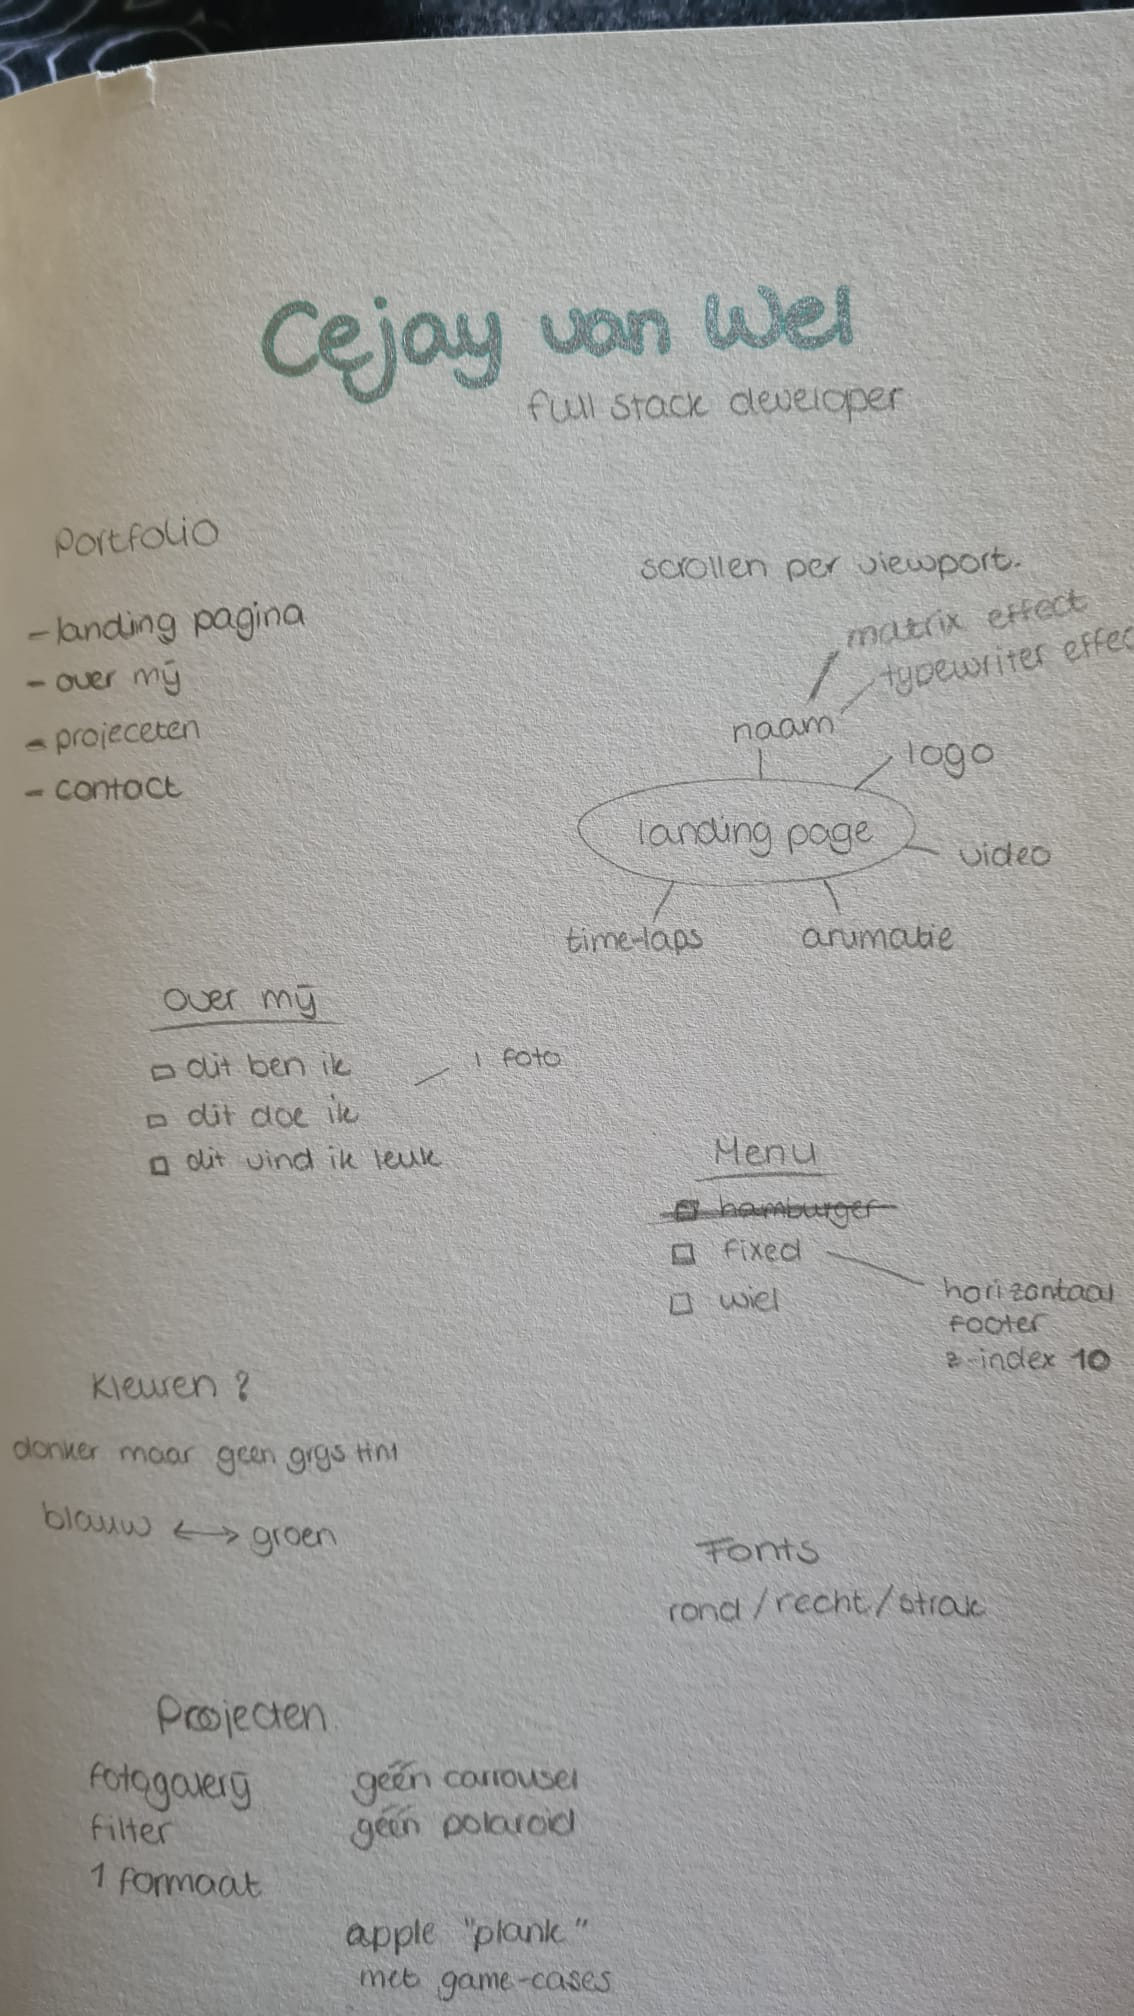 Cejay van Wel
full stack developer
Portfolio
- landing pagina
- over mij
- projeceten
- contact
scrollen per viewport.
matrix effect
typewriter effec
naam
logo
landing page
video
time-laps
animatie
over mij
dit ben ik
1 foto
dit doe ik
dit vind ik leuk
Menu
hamburger
fixed
wiel
horizontaal
footer
z-index 10
Kleuren ?
donker maar geen grijs tint
blauw ↔ groen
Fonts
rond / recht / strak
Projecten
fotogalerij
filter
1 formaat
géén carrousel
géén polaroid
apple "plank"
met game-cases